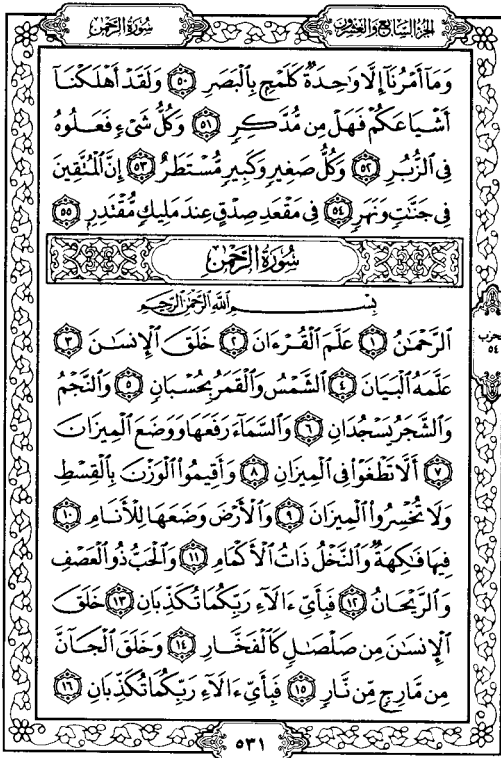 سُورَةُ الرَّحْمٰن
الجُزْءُ السَّابِعُ وَالعِشْرُونَ
وَمَآ أَمْرُنَآ إِلَّا وَٰحِدَةٌ كَلَمْحٍۭ بِٱلْبَصَرِ ٥٠ وَلَقَدْ أَهْلَكْنَآ
أَشْيَاعَكُمْ فَهَلْ مِن مُّدَّكِرٍ ٥١ وَكُلُّ شَىْءٍ فَعَلُوهُ
فِى ٱلزُّبُرِ ٥٢ وَكُلُّ صَغِيرٍ وَكَبِيرٍ مُّسْتَطَرٌ ٥٣ إِنَّ ٱلْمُتَّقِينَ
فِى جَنَّٰتٍ وَنَهَرٍ ٥٤ فِى مَقْعَدِ صِدْقٍ عِندَ مَلِيكٍ مُّقْتَدِرٍۭ ٥٥
سُورَةُ الرَّحْمٰن
بِسْمِ ٱللَّهِ ٱلرَّحْمَٰنِ ٱلرَّحِيمِ
ٱلرَّحْمَٰنُ ١ عَلَّمَ ٱلْقُرْءَانَ ٢ خَلَقَ ٱلْإِنسَٰنَ ٣
عَلَّمَهُ ٱلْبَيَانَ ٤ ٱلشَّمْسُ وَٱلْقَمَرُ بِحُسْبَانٍ ٥ وَٱلنَّجْمُ
وَٱلشَّجَرُ يَسْجُدَانِ ٦ وَٱلسَّمَآءَ رَفَعَهَا وَوَضَعَ ٱلْمِيزَانَ
٧ أَلَّا تَطْغَوْا۟ فِى ٱلْمِيزَانِ ٨ وَأَقِيمُوا۟ ٱلْوَزْنَ بِٱلْقِسْطِ
وَلَا تُخْسِرُوا۟ ٱلْمِيزَانَ ٩ وَٱلْأَرْضَ وَضَعَهَا لِلْأَنَامِ ١٠
فِيهَا فَٰكِهَةٌ وَٱلنَّخْلُ ذَاتُ ٱلْأَكْمَامِ ١١ وَٱلْحَبُّ ذُو ٱلْعَصْفِ
وَٱلرَّيْحَانُ ١٢ فَبِأَىِّ ءَالَآءِ رَبِّكُمَا تُكَذِّبَانِ ١٣ خَلَقَ
ٱلْإِنسَٰنَ مِن صَلْصَٰلٍ كَٱلْفَخَّارِ ١٤ وَخَلَقَ ٱلْجَآنَّ
مِن مَّارِجٍ مِّن نَّارٍ ١٥ فَبِأَىِّ ءَالَآءِ رَبِّكُمَا تُكَذِّبَانِ ١٦
حزب
٥٤
٥٣١